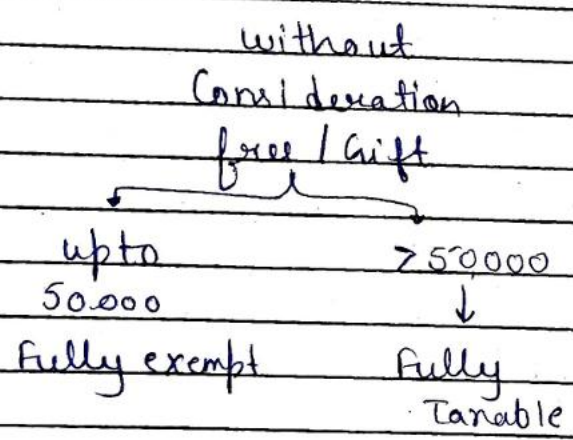 without
Consideration
free / Gift
upto >50000
50.000
Fully exempt Fully
Taxable